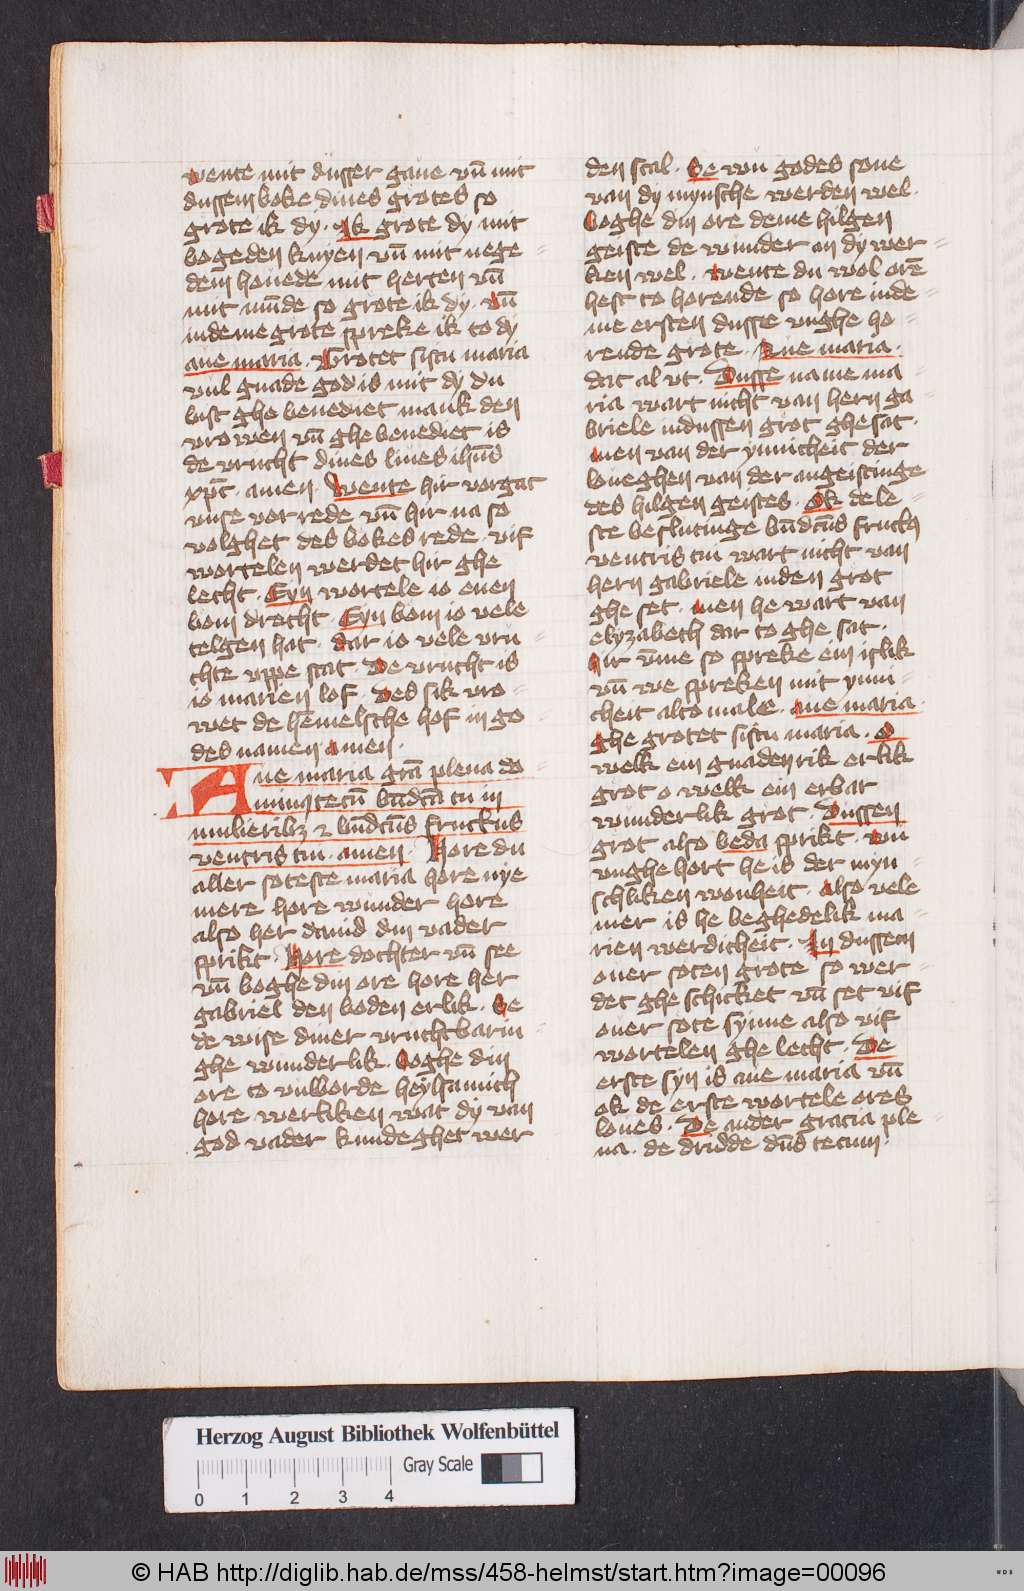 wente mit dusser gaue vn̄ mit
dussem boke dines grotes so
grote ik dy. Ik grote dy mit
bogeden knyen vn̄ mit nege
dem houede mit herten vn̄
mit mūde so grote ik dy. vn̄
in deme grote spreke ik to dy
aue maria. Grotet sistu maria
vul gnade god is mit dy du
bist ghe benediet mank den
vrowen vn̄ ghe benediet is
de vrucht dines liues ihūs
xp̄c. amen. Wente hir vorgat
vnse vorrede vn̄ hir na so
volghet des bokes rede. vif
wortelen werdet hir ghe
lecht. Eyn wortele io enen
bom drecht. Eyn bom io vele
telgen hat. dar io vele vru
chte vppe stat. De vrucht is
io marien lof. Des sik vro
wet de hēmelsche hof in go
des namen amen.
Aue maria grā plena do
minꝯ tecū bn̄dcā tu in
mulieribꝫ ⁊ bn̄dcūs fructus
ventris tui. amen. Hore du
aller soteste maria hore nye
mere hore wunder hore
also her dauid din vader
sprikt. Hore dochter vn̄ see
vn̄ boghe din ore hore her
gabriel den boden erlik. Se
de wise diner vruchtbarin
ghe wunderlik. boghe din
ore to vnworde heylsamich
hore werliken wat dy van
god vader kundeghet wer
den scal. Se wu godes sone
van dy mynsche werden wel.
boghe din ore deme hilgen
geiste de wunder an dy wer
ken wel. wente du wol orē
hest to horende so hore in de
me ersten dusse vughe ho
rende grote. Aue maria.
dat al vt. Dusse name ma
ria wart nicht van hern ga
briele in dussen grot ghe sat.
men van der ynnicheit der
loueghen van der angeistinge
des hilgen geistes. Ok de le
ste beslutinge bn̄dcūs fructꝯ
ventris tui wart nicht van
hern gabriele in den grot
ghe set. men he wart van
elyzabeth dar to ghe sat.
hir vm̄e so spreke ein islik
vn̄ we spreken mit ynni
cheit alto male. aue maria.
ghe grotet sistu maria. O
welk ein gnaden rik erlik
grot o welk ein erbar
wunderlik grot. Dussen
grot also beda sprikt. wu
vughe hort he is der myn
schliken wonheit. also vele
mer is he beghedelik ma
rien werdicheit. In dussem
ouer soten grote so wer
det ghe schicket vn̄ set vif
ouer sote synne also vif
wortelen ghe lecht. De
erste syn is aue maria vn̄
ok de erste wortele ores
loues. De ander gracia ple
na. de drudde dn̄s tecum.
Herzog August Bibliothek Wolfenbüttel
Gray Scale
0 1 2 3 4
© HAB http://diglib.hab.de/mss/458-helmst/start.htm?image=00096